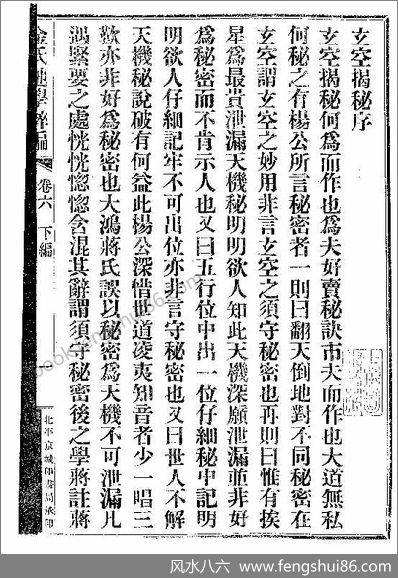 玄空揭秘序
玄空揭秘何為而作也為夫好賣秘訣市夫而作也大道無私
何秘之有楊公所言秘密者一則曰翻天倒地對不同秘密在
玄空謂玄空之妙用非言玄空之須守秘密也再則曰惟有挨
星為最貴泄漏天機秘明明欲人知此天機深願泄漏並非好
為秘密而不肯示人也又曰五行位中出一位仔細秘中記明
明欲人仔細記牢不可出位亦非言守秘密也又曰世人不解
天機秘說破有何益此楊公深惜世道凌夷知音者少一唱三
歎亦非好為秘密也大鴻蔣氏誤以秘密為天機不可泄漏凡
遇緊要之處恍恍惚惚含混其辭謂須守秘密後之學蔣註蔣
金氏地學粹編
卷六 下編
北平京城印書局承印
风水八六 www.fengshui86.com